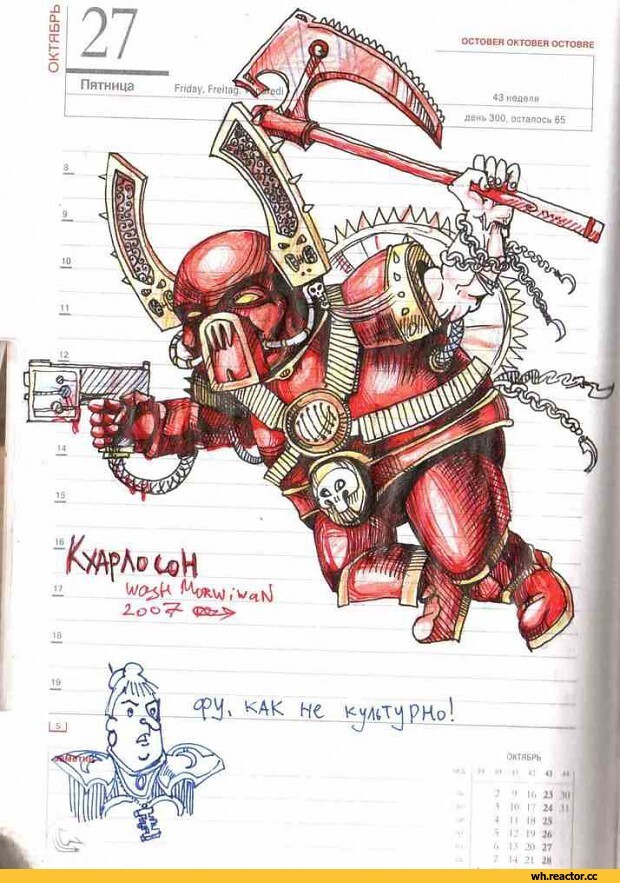 ОКТЯБРЬ
27
Пятница
Friday, Freitag,
OCTOBER ОКТОВЕR ОСТОBRE
43 неделя
день 300, осталось 65
8
9
10
11
12
14
15
16
17
18
19
Кхарлосон
2007
фу, как не культурно!
заметки
ОКТЯБРЬ
2 9 16 23 30
3 10 17 24 31
4 11 18 25
5 12 19 26
6 13 20 27
7 14 21 28
wh.reactor.cc